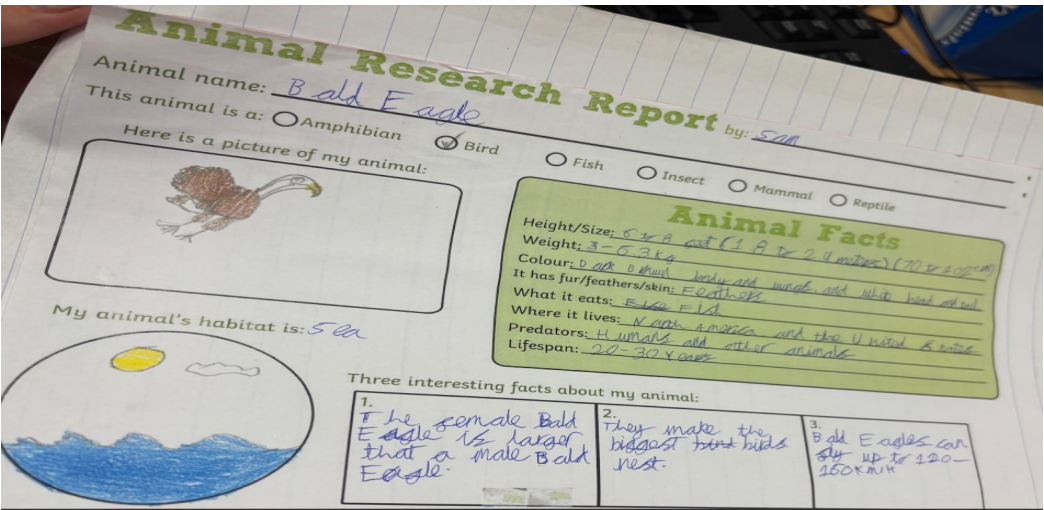 Animal Research Report by: Sam
Animal name: Bald Eagle
This animal is a: Amphibian Bird Fish Insect Mammal Reptile
Here is a picture of my animal:
Animal Facts
Height/Size: 6 to 8 (1 to 2 metres) (70 to
Weight: 3-6.3 kg
Colour: Dark body and wings and head and
It has fur/feathers/skin: Feathers
What it eats:
Where it lives: North America and the United States
Predators: Humans and other animals
Lifespan: 20-30 Years
My animal's habitat is: Sea
Three interesting facts about my animal:
1.
The female Bald
Eagle is larger
that a male Bald
Eagle.
2.
They make the
biggest birds
nest.
3.
Bald Eagles can
fly up to 120-
160km/h